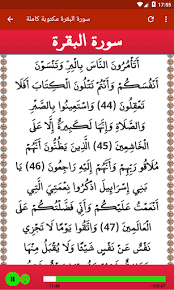 17:55
سورة البقرة مكتوبة كاملة
سورة البقرة
أَتَأْمُرُونَ النَّاسَ بِالْبِرِّ وَتَنْسَوْنَ
أَنْفُسَكُمْ وَأَنْتُمْ تَتْلُونَ الْكِتَابَ أَفَلَا
تَعْقِلُونَ (44) وَاسْتَعِينُوا بِالصَّبْرِ
وَالصَّلَاةِ وَإِنَّهَا لَكَبِيرَةٌ إِلَّا عَلَى
الْخَاشِعِينَ (45) الَّذِينَ يَظُنُّونَ أَنَّهُمْ
مُلَاقُو رَبِّهِمْ وَأَنَّهُمْ إِلَيْهِ رَاجِعُونَ (46) يَا
بَنِي إِسْرَائِيلَ اذْكُرُوا نِعْمَتِيَ الَّتِي
أَنْعَمْتُ عَلَيْكُمْ وَأَنِّي فَضَّلْتُكُمْ عَلَى
الْعَالَمِينَ (47) وَاتَّقُوا يَوْمًا لَا تَجْزِي
نَفْسٌ عَنْ نَفْسٍ شَيْئًا وَلَا يُقْبَلُ مِنْهَا